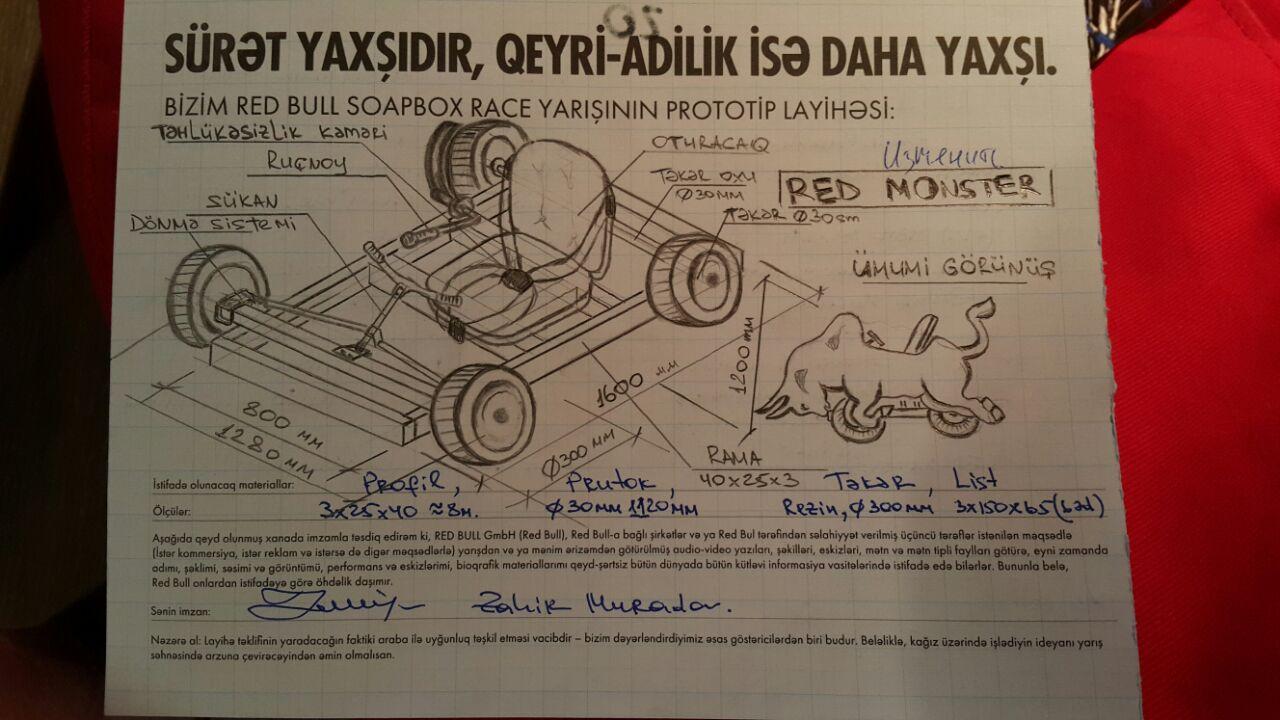 SÜRƏT YAXŞIDIR, QEYRİ-ADİLİK İSƏ DAHA YAXŞI.
BİZİM RED BULL SOAPBOX RACE YARIŞININ PROTOTİP LAYİHƏSİ:
TəHLÜKəSİZLİK KəMəRİ
RUÇNOY
SÜKAN
DÖNMə SİSTEMİ
OTURACAQ
TəKəR OXU
Ø30MM
TəKəR Ø30sm
Изменить
RED MONSTER
ÜMUMİ GÖRÜNÜŞ
1200 мм
1600 мм
800 мм
1280 мм
Ø300 мм
RAMA
40x25x3
İstifadə olunacaq materiallar: Profil, Prutok, Təkər, List
Ölçülər: 3x25x40 ≈8м. Ø30мм 1120мм Rezin, Ø300мм 3x150x65 (əd)
Aşağıda qeyd olunmuş xanada imzamla təsdiq edirəm ki, RED BULL GmbH (Red Bull), Red Bull-a bağlı şirkətlər və ya Red Bul tərəfindən səlahiyyət verilmiş üçüncü tərəflər istənilən məqsədlə
(İstər kommersiya, istər reklam və istərsə də digər məqsədlərlə) yarışdan və ya mənim ərizəmdən götürülmüş audio-video yazıları, şəkilləri, eskizləri, mətn və mətn tipli faylları götürə, eyni zamanda
adımı, şəklimi, səsimi və görüntümü, performans və eskizlərimi, bioqrafik materiallarımı qeyd-şərtsiz bütün dünyada bütün kütləvi informasiya vasitələrində istifadə edə bilərlər. Bununla belə,
Red Bull onlardan istifadəyə görə öhdəlik daşımır.
Sənin imzan: Zahir Muradov.
Nəzərə al: Layihə təklifinin yaradacağın faktiki araba ilə uyğunluq təşkil etməsi vacibdir – bizim dəyərləndirdiyimiz əsas göstəricilərdən biri budur. Beləliklə, kağız üzərində işlədiyin ideyanı yarış
səhnəsində arzuna çevirəcəyindən əmin olmalısan.